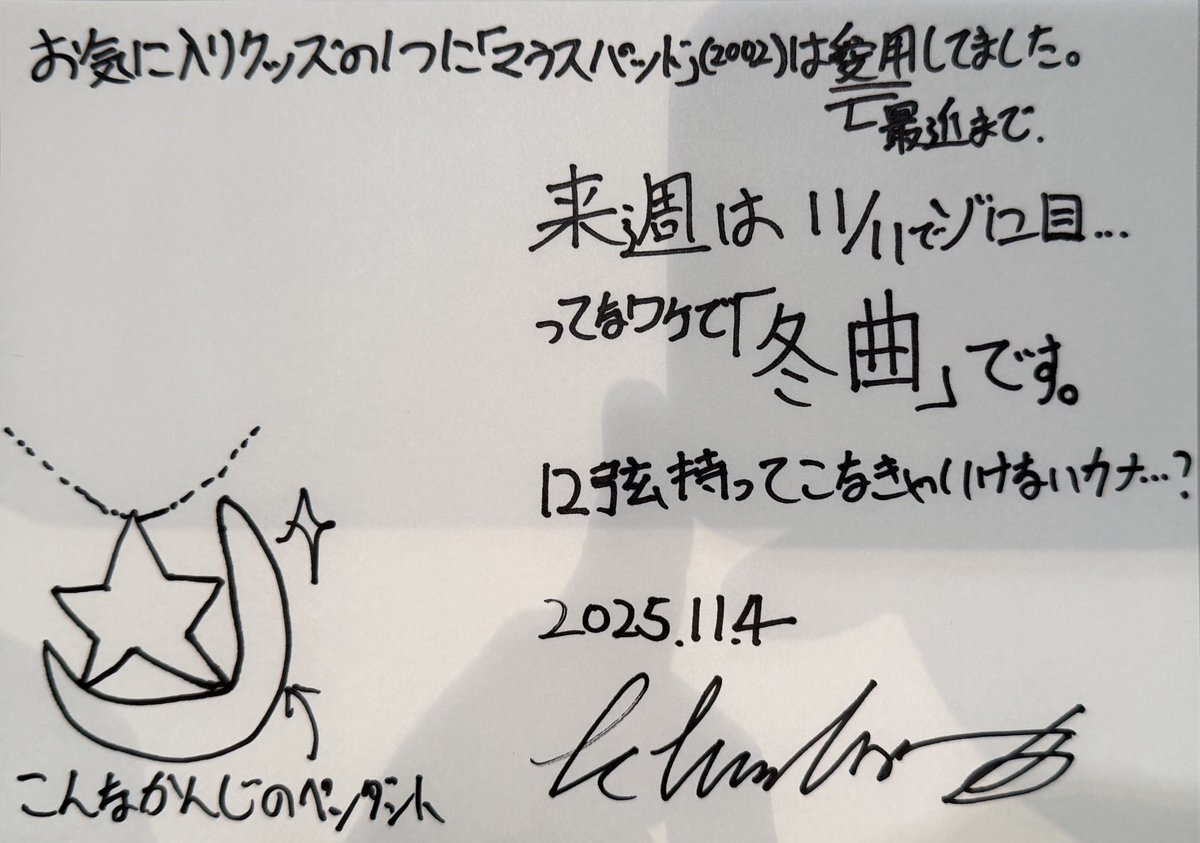 お気に入りグッズの1つに「マウスパッド」(2002)は愛用してました。
最近まで.
来週は 11/11でゾロ目...
ってなワケで「冬曲」です。
12弦持ってこなきゃいけないカナ...?
2025.11.4
こんなかんじのペンダント